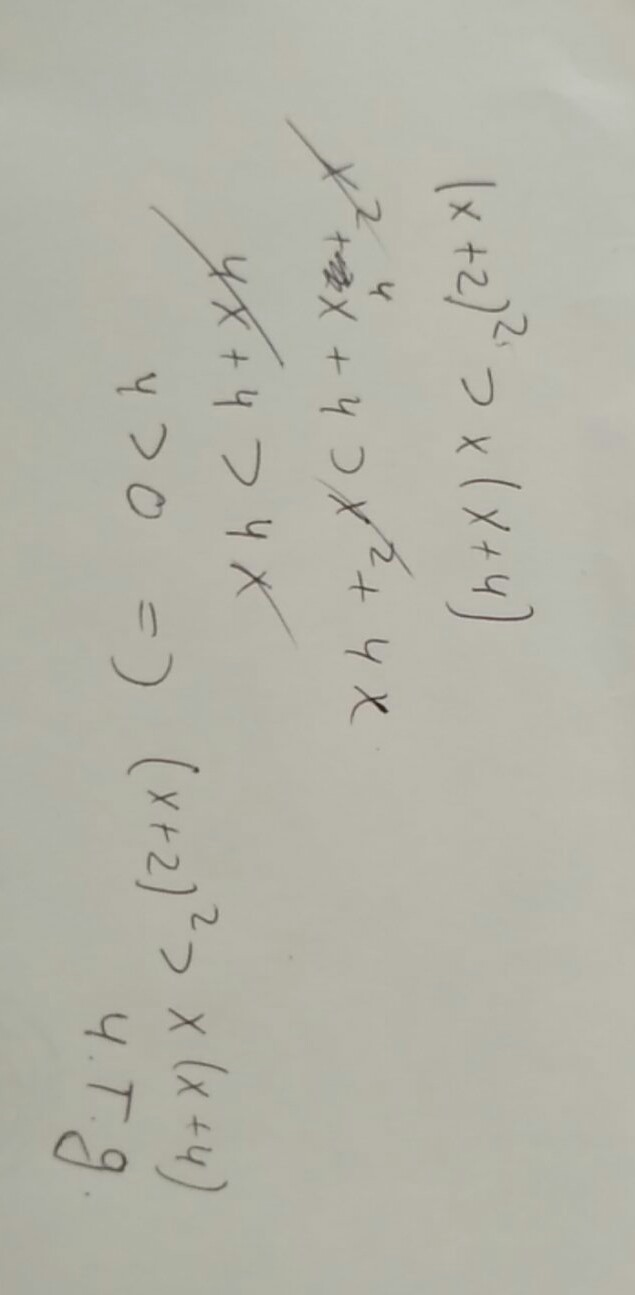 (x+2)² > x(x+4)
x² + 4x + 4 > x² + 4x
4x + 4 > 4x
4 > 0 => (x+2)² > x(x+4)
4.T.g.